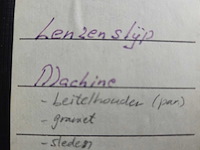 Lenzenslyp
Machine
- Beitelhouder (par)
- graniet
- sleden